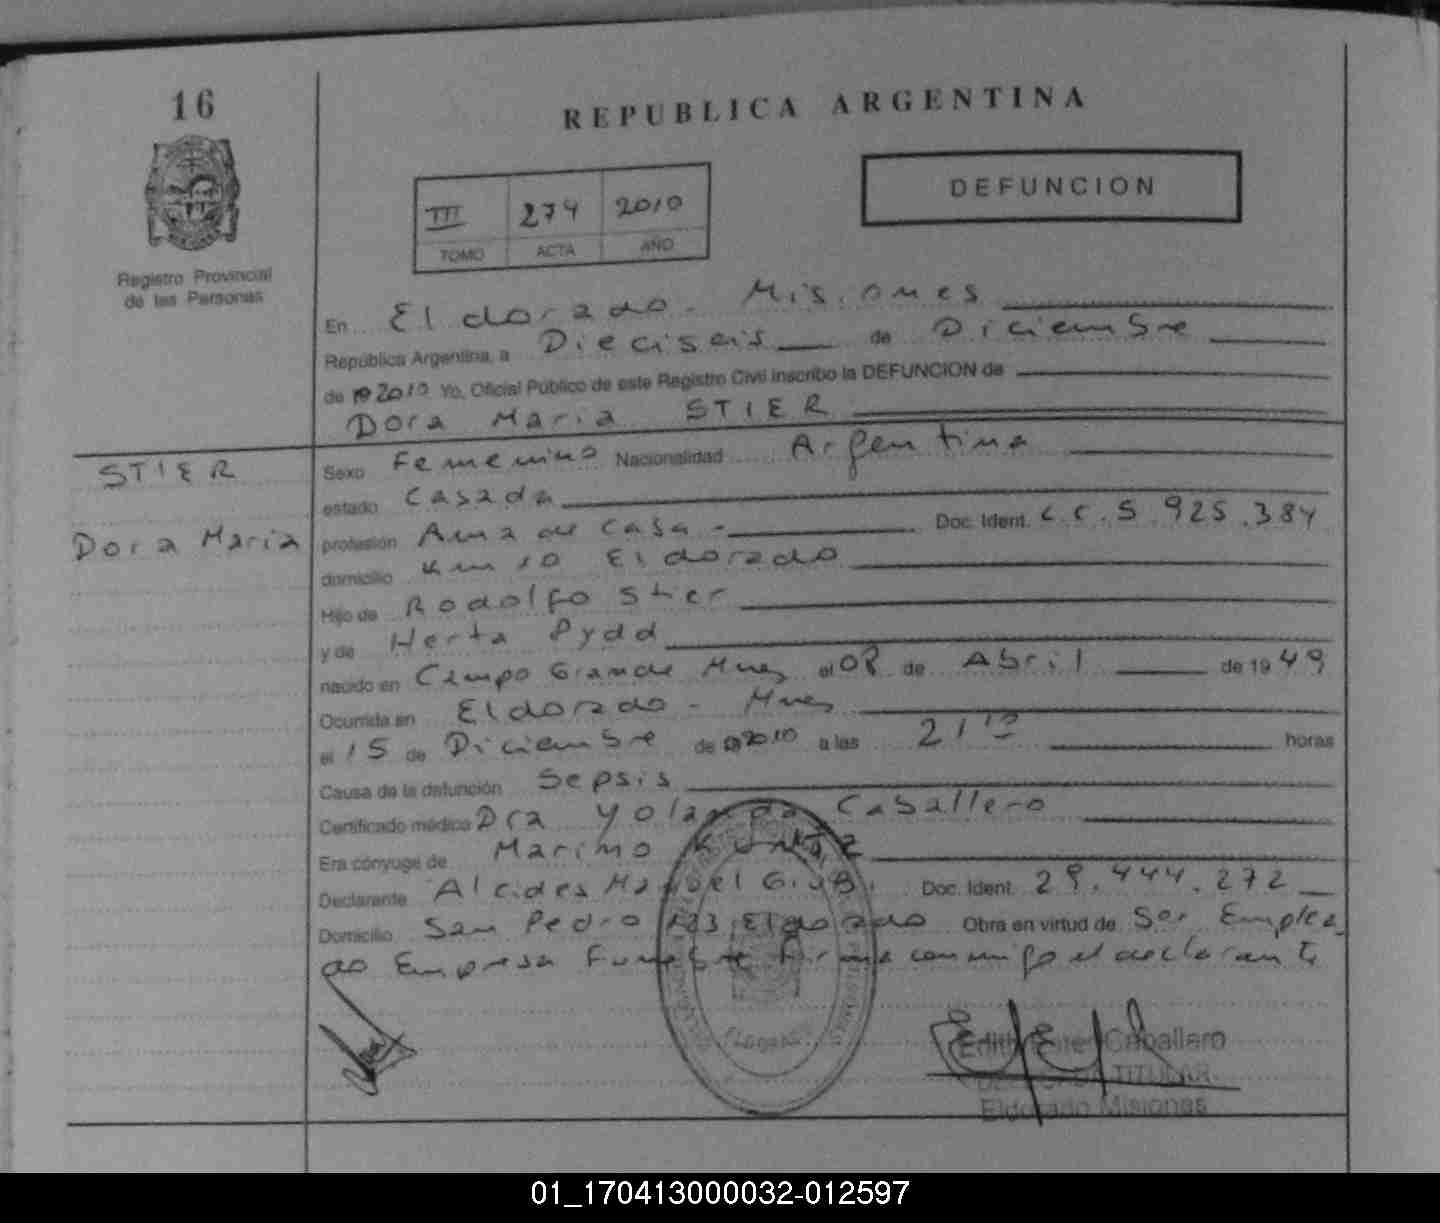 16
REPUBLICA ARGENTINA
DEFUNCION
III 274 2010
TOMO ACTA AÑO
Registro Provincial
de las Personas
En Eldorado - Misiones
República Argentina, a Dieciseis de Diciembre
de 19 2010 Yo, Oficial Público de este Registro Civil inscribo la DEFUNCION de
Dora Maria STIER
STIER
Dora Maria
Sexo Femenino Nacionalidad Argentina
estado Casada
profesión Ama de Casa - Doc. Ident. L.C. 5.925.384
domicilio Km 10 Eldorado
Hijo de Rodolfo Stier
y de Herta Pydd
nacido en Campo Grande Mnes el 08 de Abril de 19 49
Ocurrida en Eldorado - Mnes
el 15 de Diciembre de 2010 a las 21 10 horas
Causa de la defunción Sepsis
Certificado médico Dra Yolanda Caballero
Era cónyuge de Marino
Declarante Alcides Manuel Doc. Ident. 29.444.272
Domicilio San Pedro Eldorado Obra en virtud de Ser Emplea
do Empresa Funebre firma conmigo el declarante
ELDORADO
Edith Caballero
TITULAR
Eldorado Misiones
01_170413000032-012597